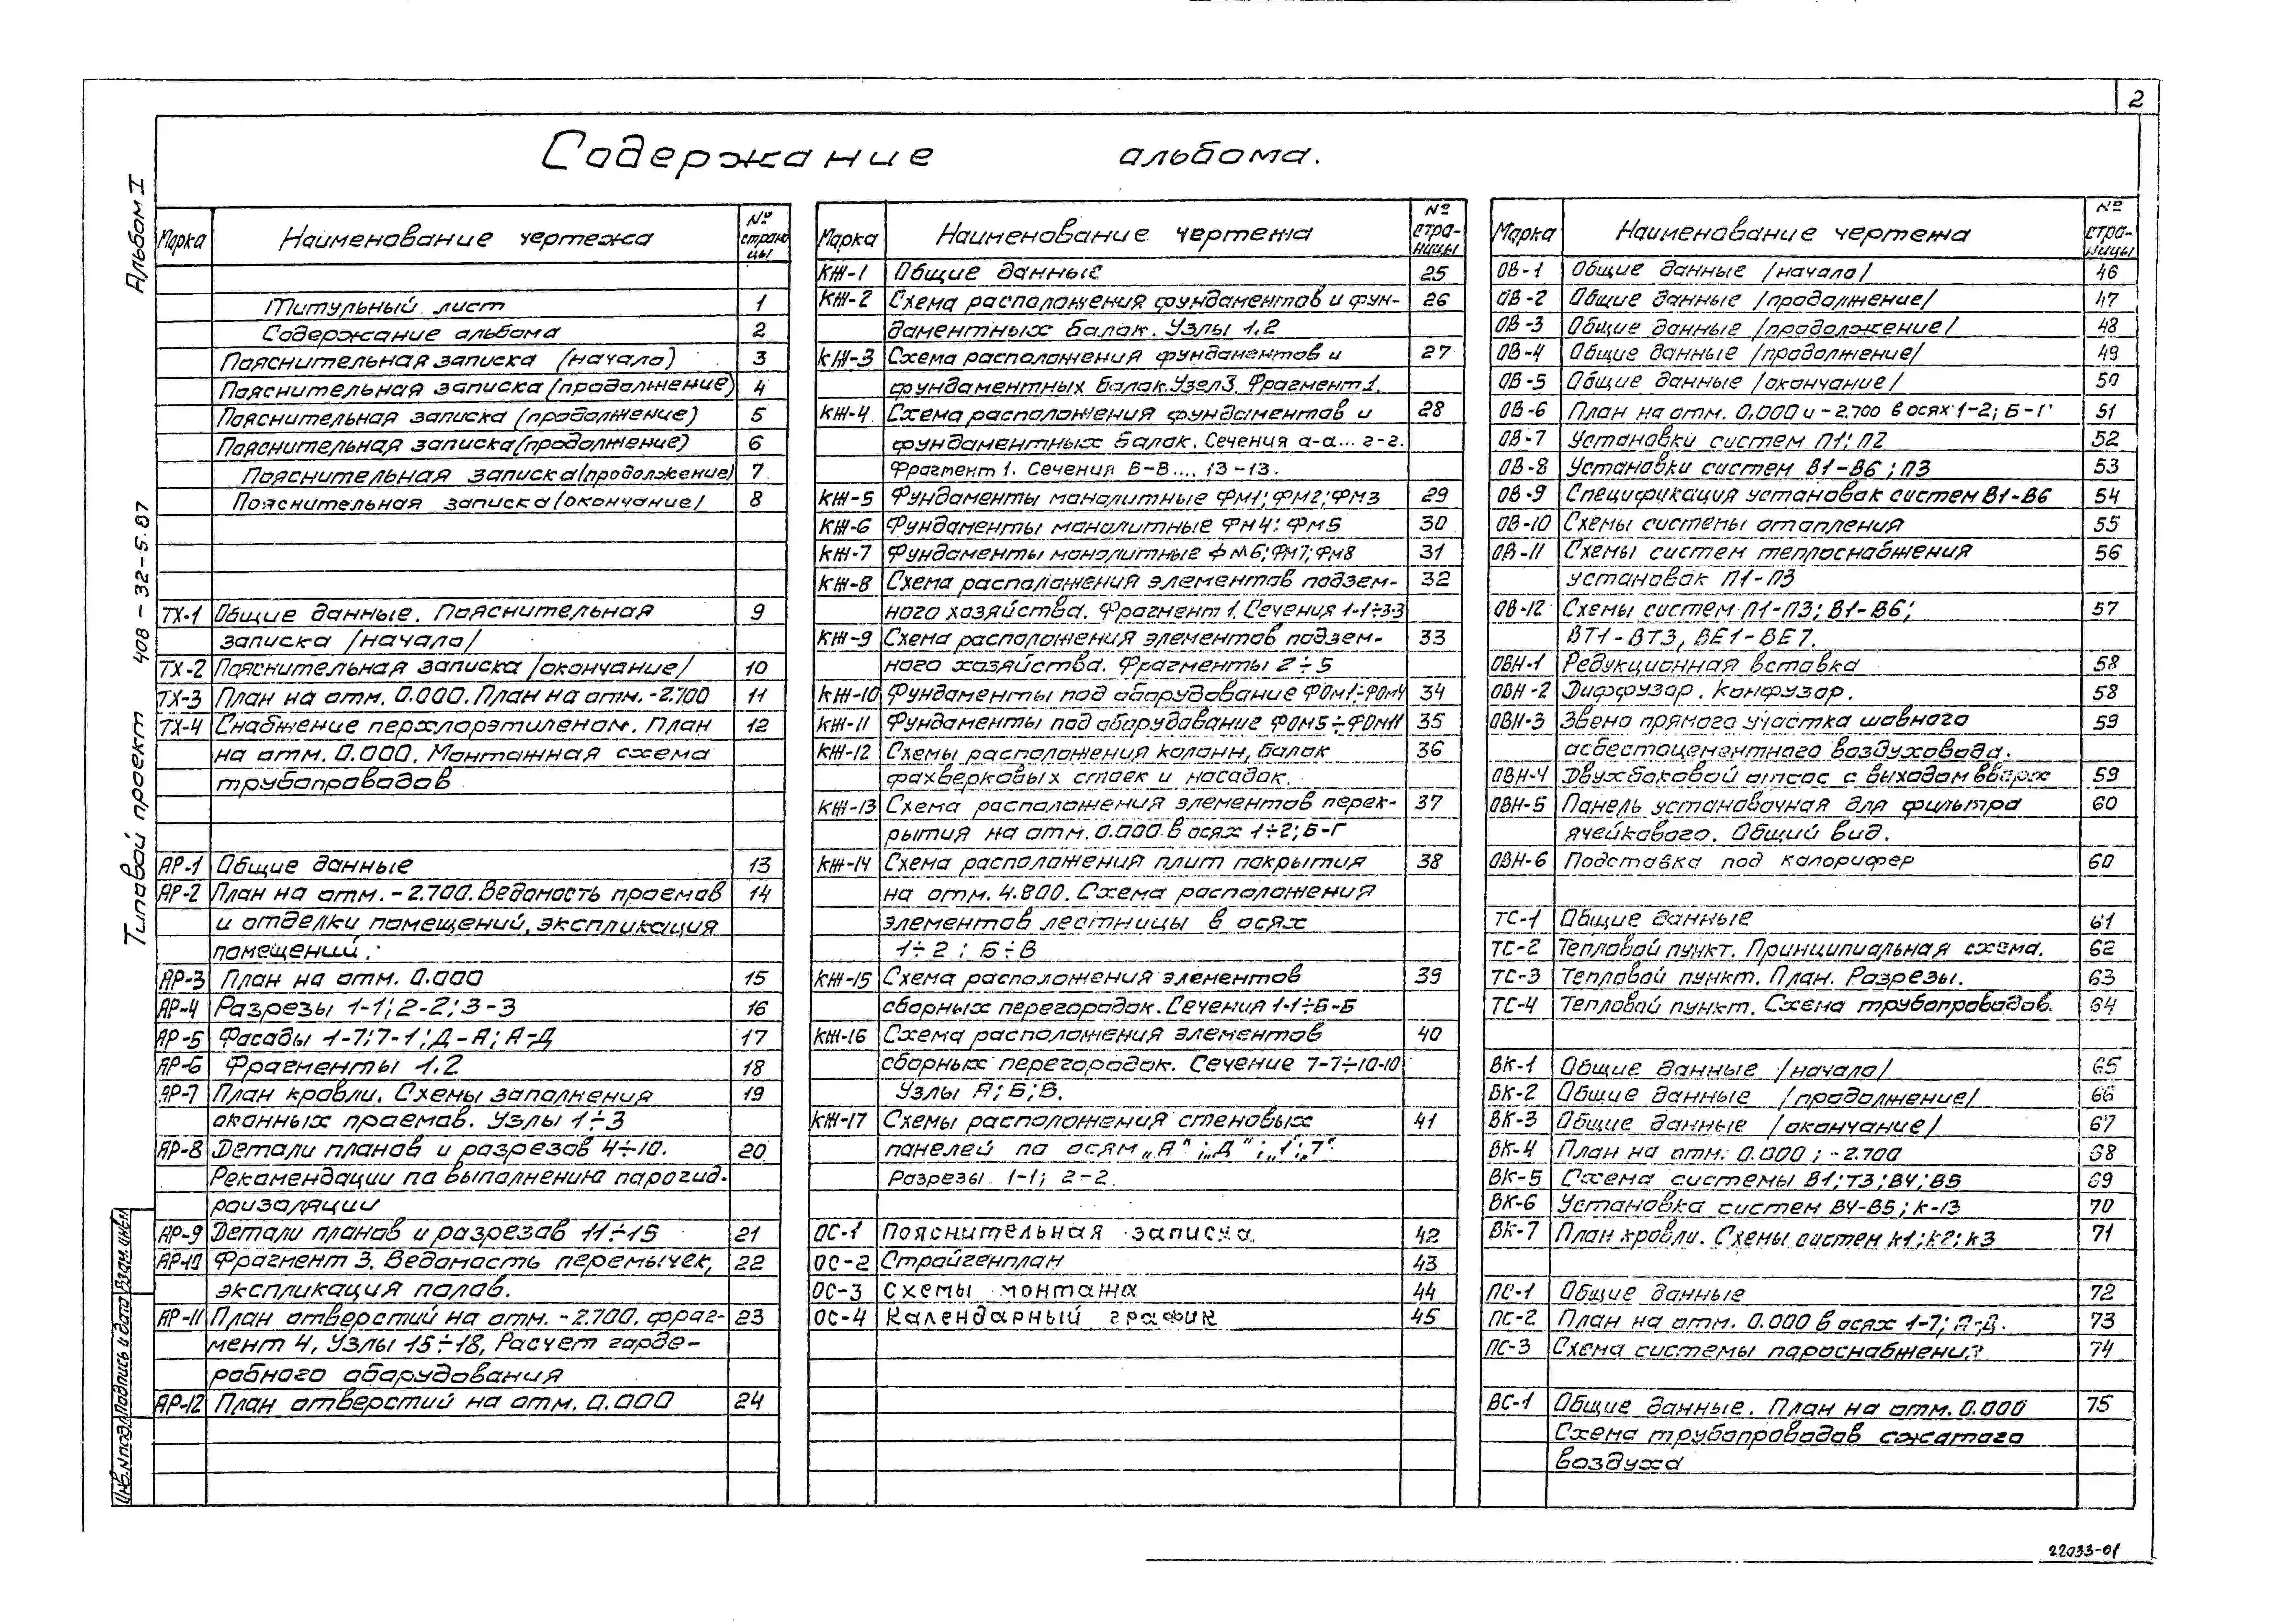 2
Содержание альбома.
Альбом I
Типовой проект 408-32-5.87
Марка Наименование чертежа № страницы
Титульный лист 1
Содержание альбома 2
Пояснительная записка (начало) 3
Пояснительная записка (продолжение) 4
Пояснительная записка (продолжение) 5
Пояснительная записка (продолжение) 6
Пояснительная записка (продолжение) 7
Пояснительная записка (окончание) 8
ТХ-1 Общие данные. Пояснительная 9
записка /начало/
ТХ-2 Пояснительная записка /окончание/ 10
ТХ-3 План на отм. 0.000. План на отм. -2.700 11
ТХ-4 Снабжение перхлорэтиленом. План 12
на отм. 0.000. Монтажная схема
трубопроводов
АР-1 Общие данные 13
АР-2 План на отм. -2.700. Ведомость проемов 14
и отделки помещений, экспликация
помещений.
АР-3 План на отм. 0.000 15
АР-4 Разрезы 1-1; 2-2; 3-3 16
АР-5 Фасады 1-7; 7-1; Д-А; А-Д 17
АР-6 Фрагменты 1.2 18
АР-7 План кровли. Схемы заполнения 19
оконных проемов. Узлы 1÷3
АР-8 Детали планов и разрезов 4÷10. 20
Рекомендации по выполнению парогид-
роизоляции
АР-9 Детали планов и разрезов 11÷15 21
АР-10 Фрагмент 3. Ведомость перемычек, 22
экспликация полов.
АР-11 План отверстий на отм. -2.700. фраг- 23
мент 4, Узлы 15÷18, Расчет гарде-
робного оборудования
АР-12 План отверстий на отм. 0.000 24
Марка Наименование чертежа № страницы
КЖ-1 Общие данные 25
КЖ-2 Схема расположения фундаментов и фун- 26
даментных балок. Узлы 1.2
КЖ-3 Схема расположения фундаментов и 27
фундаментных балок. Узел 3. Фрагмент 1.
КЖ-4 Схема расположения фундаментов и 28
фундаментных балок. Сечения а-а... г-г.
Фрагмент 1. Сечения В-В.... 13-13.
КЖ-5 Фундаменты монолитные ФМ1; ФМ2; ФМ3 29
КЖ-6 Фундаменты монолитные ФМ4; ФМ5 30
КЖ-7 Фундаменты монолитные ФМ6; ФМ7; ФМ8 31
КЖ-8 Схема расположения элементов подзем- 32
ного хозяйства. Фрагмент 1. Сечения 1-1÷3-3
КЖ-9 Схема расположения элементов подзем- 33
ного хозяйства. Фрагменты 2÷5
КЖ-10 Фундаменты под оборудование ФОМ1÷ФОМ4 34
КЖ-11 Фундаменты под оборудование ФОМ5÷ФОМ11 35
КЖ-12 Схемы расположения колонн, балок 36
фахверковых стоек и насадок.
КЖ-13 Схема расположения элементов перек- 37
рытия на отм. 0.000 в осях 1÷2; Б-Г
КЖ-14 Схема расположения плит покрытия 38
на отм. 4.800. Схема расположения
элементов лестницы в осях
1÷2; Б÷В
КЖ-15 Схема расположения элементов 39
сборных перегородок. Сечения 1-1÷Б-Б
КЖ-16 Схема расположения элементов 40
сборных перегородок. Сечение 7-7÷10-10
Узлы А; Б; В.
КЖ-17 Схемы расположения стеновых 41
панелей по осям „А"; „Д"; „1"; „7".
Разрезы 1-1; 2-2.
ОС-1 Пояснительная записка. 42
ОС-2 Стройгенплан 43
ОС-3 Схемы монтажа 44
ОС-4 Календарный график 45
Марка Наименование чертежа № страницы
ОВ-1 Общие данные /начало/ 46
ОВ-2 Общие данные /продолжение/ 47
ОВ-3 Общие данные /продолжение/ 48
ОВ-4 Общие данные /продолжение/ 49
ОВ-5 Общие данные /окончание/ 50
ОВ-6 План на отм. 0.000 и -2.700 в осях 1-2; Б-Г 51
ОВ-7 Установки систем П1; П2 52
ОВ-8 Установки систем В1-В6; П3 53
ОВ-9 Спецификация установок систем В1-В6 54
ОВ-10 Схемы системы отопления 55
ОВ-11 Схемы систем теплоснабжения 56
установок П1-П3
ОВ-12 Схемы систем П1-П3; В1-В6; 57
ВТ1-ВТ3, ВЕ1-ВЕ7.
ОВН-1 Редукционная вставка 58
ОВН-2 Диффузор. Конфузор. 58
ОВН-3 Звено прямого участка шовного 59
асбестоцементного воздуховода.
ОВН-4 Двухбоковой отсос с выходом вверх 59
ОВН-5 Панель установочная для фильтра 60
ячейкового. Общий вид.
ОВН-6 Подставка под калорифер 60
ТС-1 Общие данные 61
ТС-2 Тепловой пункт. Принципиальная схема. 62
ТС-3 Тепловой пункт. План. Разрезы. 63
ТС-4 Тепловой пункт. Схема трубопроводов. 64
ВК-1 Общие данные /начало/ 65
ВК-2 Общие данные /продолжение/ 66
ВК-3 Общие данные /окончание/ 67
ВК-4 План на отм. 0.000; -2.700 68
ВК-5 Схема системы В1; Т3; В4; В5 69
ВК-6 Установка систем В4-В5; К-13 70
ВК-7 План кровли. Схемы систем К1; К2; К3 71
ПС-1 Общие данные 72
ПС-2 План на отм. 0.000 в осях 1-7; А-Д. 73
ПС-3 Схема системы пароснабжения 74
ВС-1 Общие данные. План на отм. 0.000 75
Схема трубопроводов сжатого
воздуха
Инв.№подл. Подпись и дата Взам.инв.№
22033-01